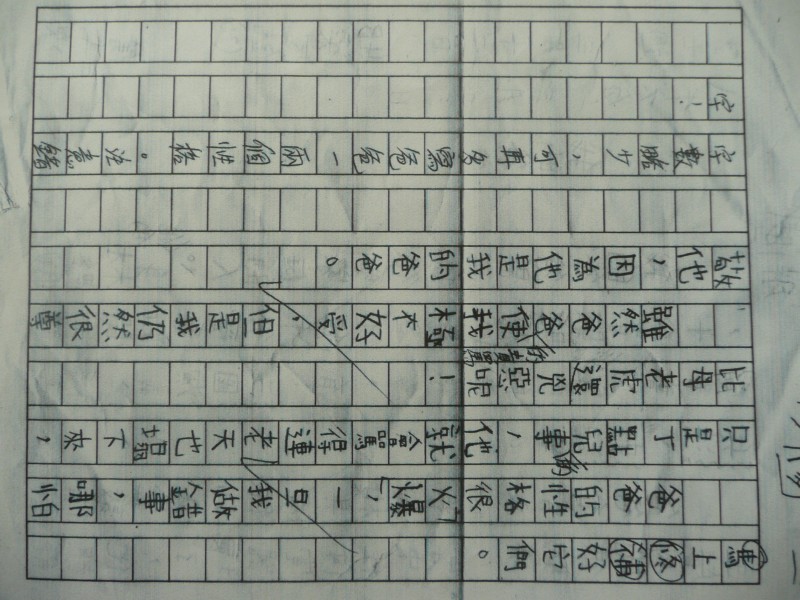 馬上修補好它們。
爸爸的性格很「火爆」,一旦我做錯事,哪怕
只是丁點兒的事,他就會罵得連老天也塌下來,
比母老虎還兇惡呢!
雖然爸爸的責罵使我極不好受,但是我仍然很尊
敬他,因為他是我的爸爸。
字數略少,可再多寫爸爸一兩個性格。注意錯
字!